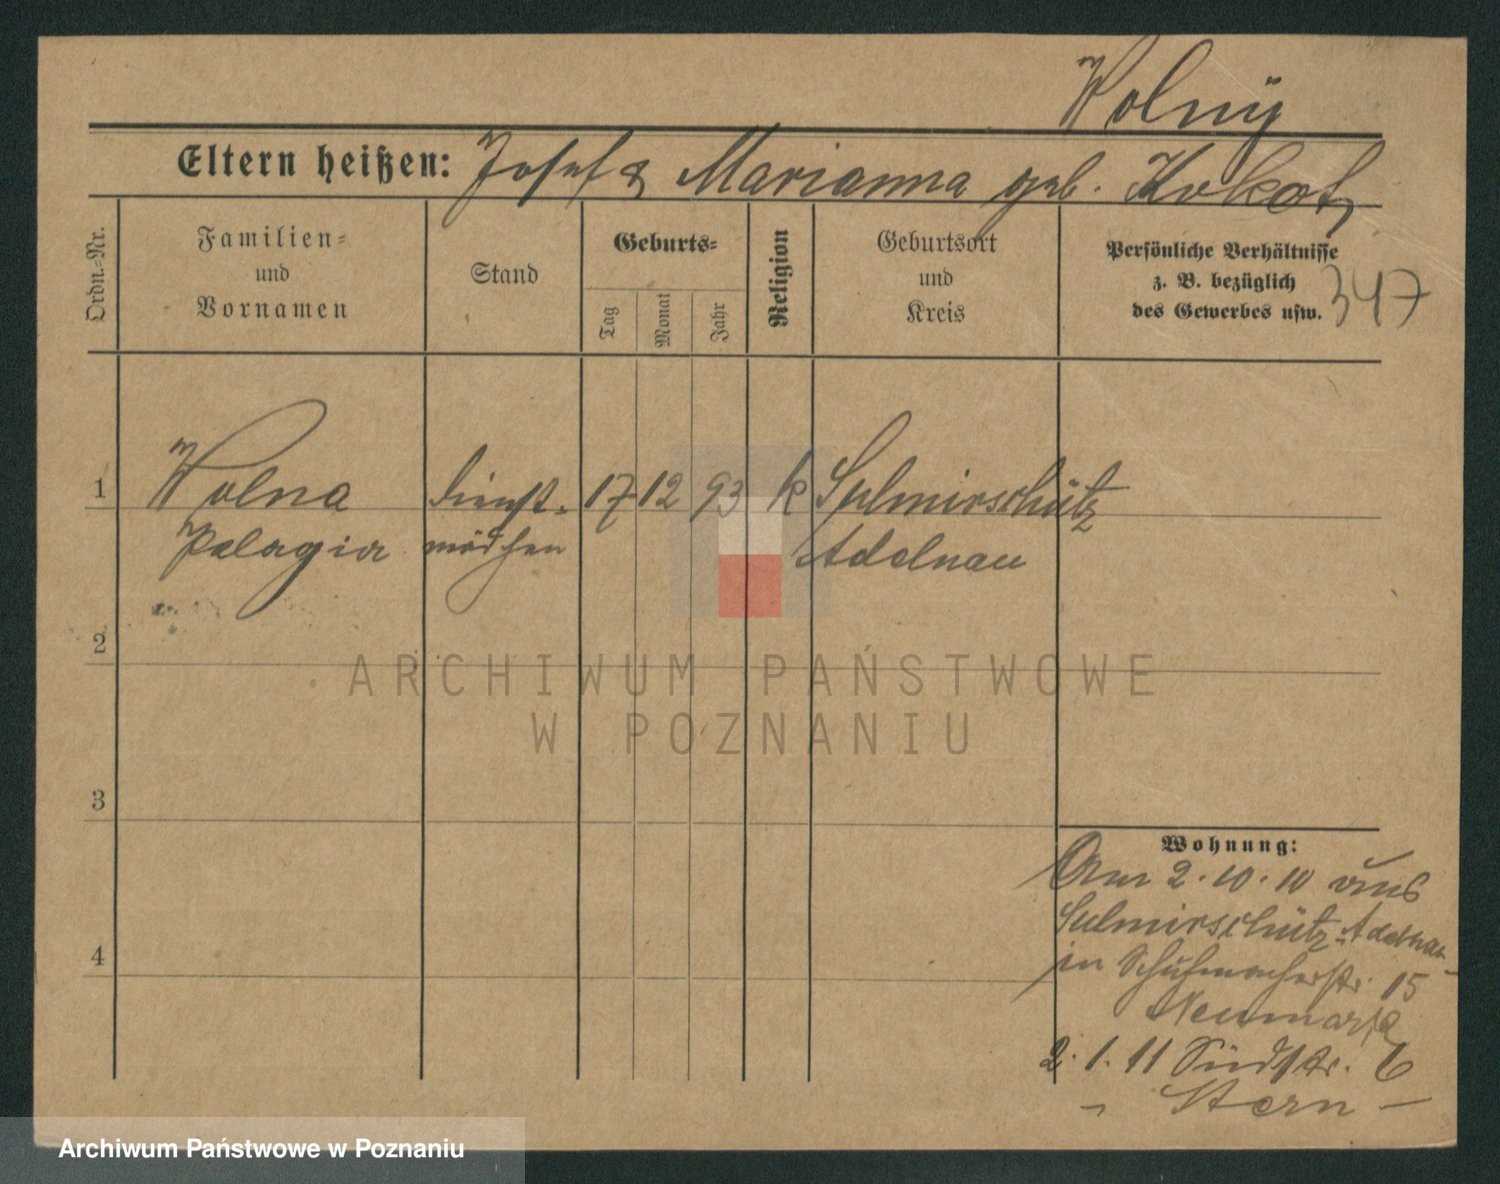 Wolny
Eltern heißen: Josef & Marianna geb. Kokot
Ordn.-Nr.
Familien-
und
Vornamen
Stand
Geburts-
Tag
Monat
Jahr
Religion
Geburtsort
und
Kreis
Persönliche Verhältnisse
z. B. bezüglich
des Gewerbes usw.
347
1 Wolna Dienst- 17 12 93 k Sulmirschütz
Pelagia mädchen Adelnau
2
3
4
Wohnung:
Am 2.10.10 aus
Sulmirschütz-Adelnau
in Schuhmacherstr. 15
2.1.11 Südstr. 6
- Stern -
ARCHIWUM PAŃSTWOWE
W POZNANIU
Archiwum Państwowe w Poznaniu